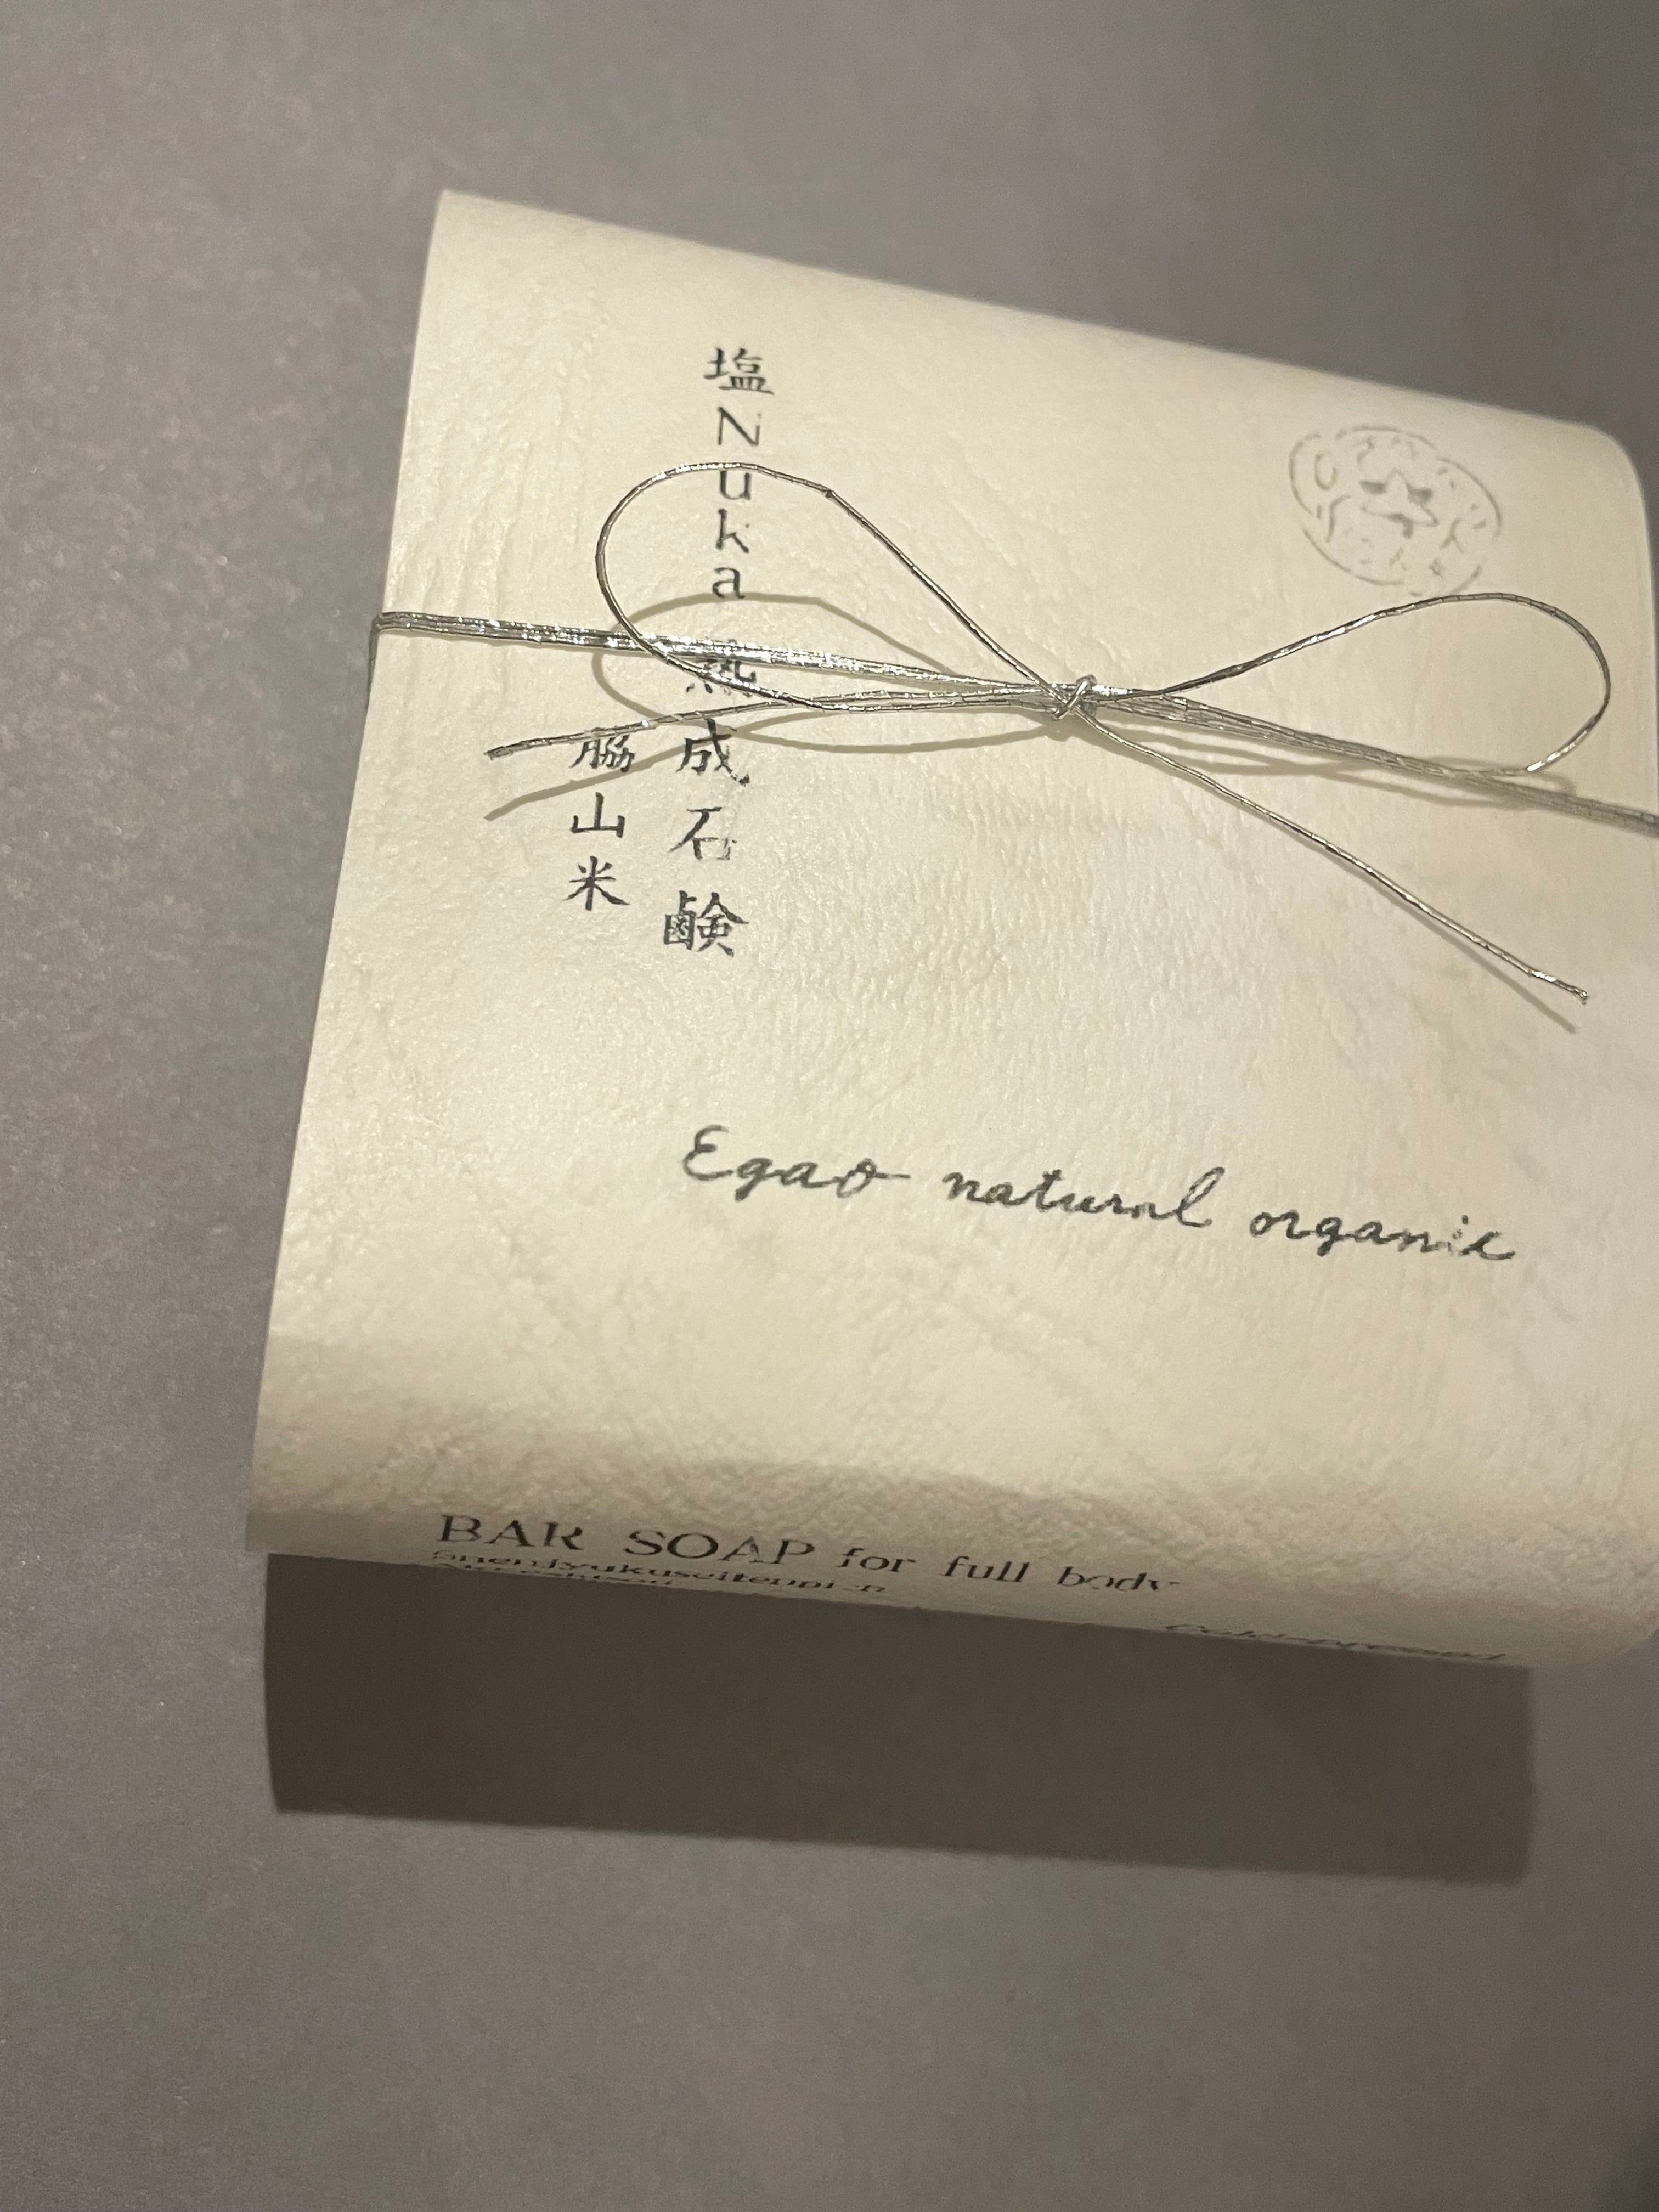 塩Nuka 熟成石鹸
脇山米
Egao natural organic
BAR SOAP for full body